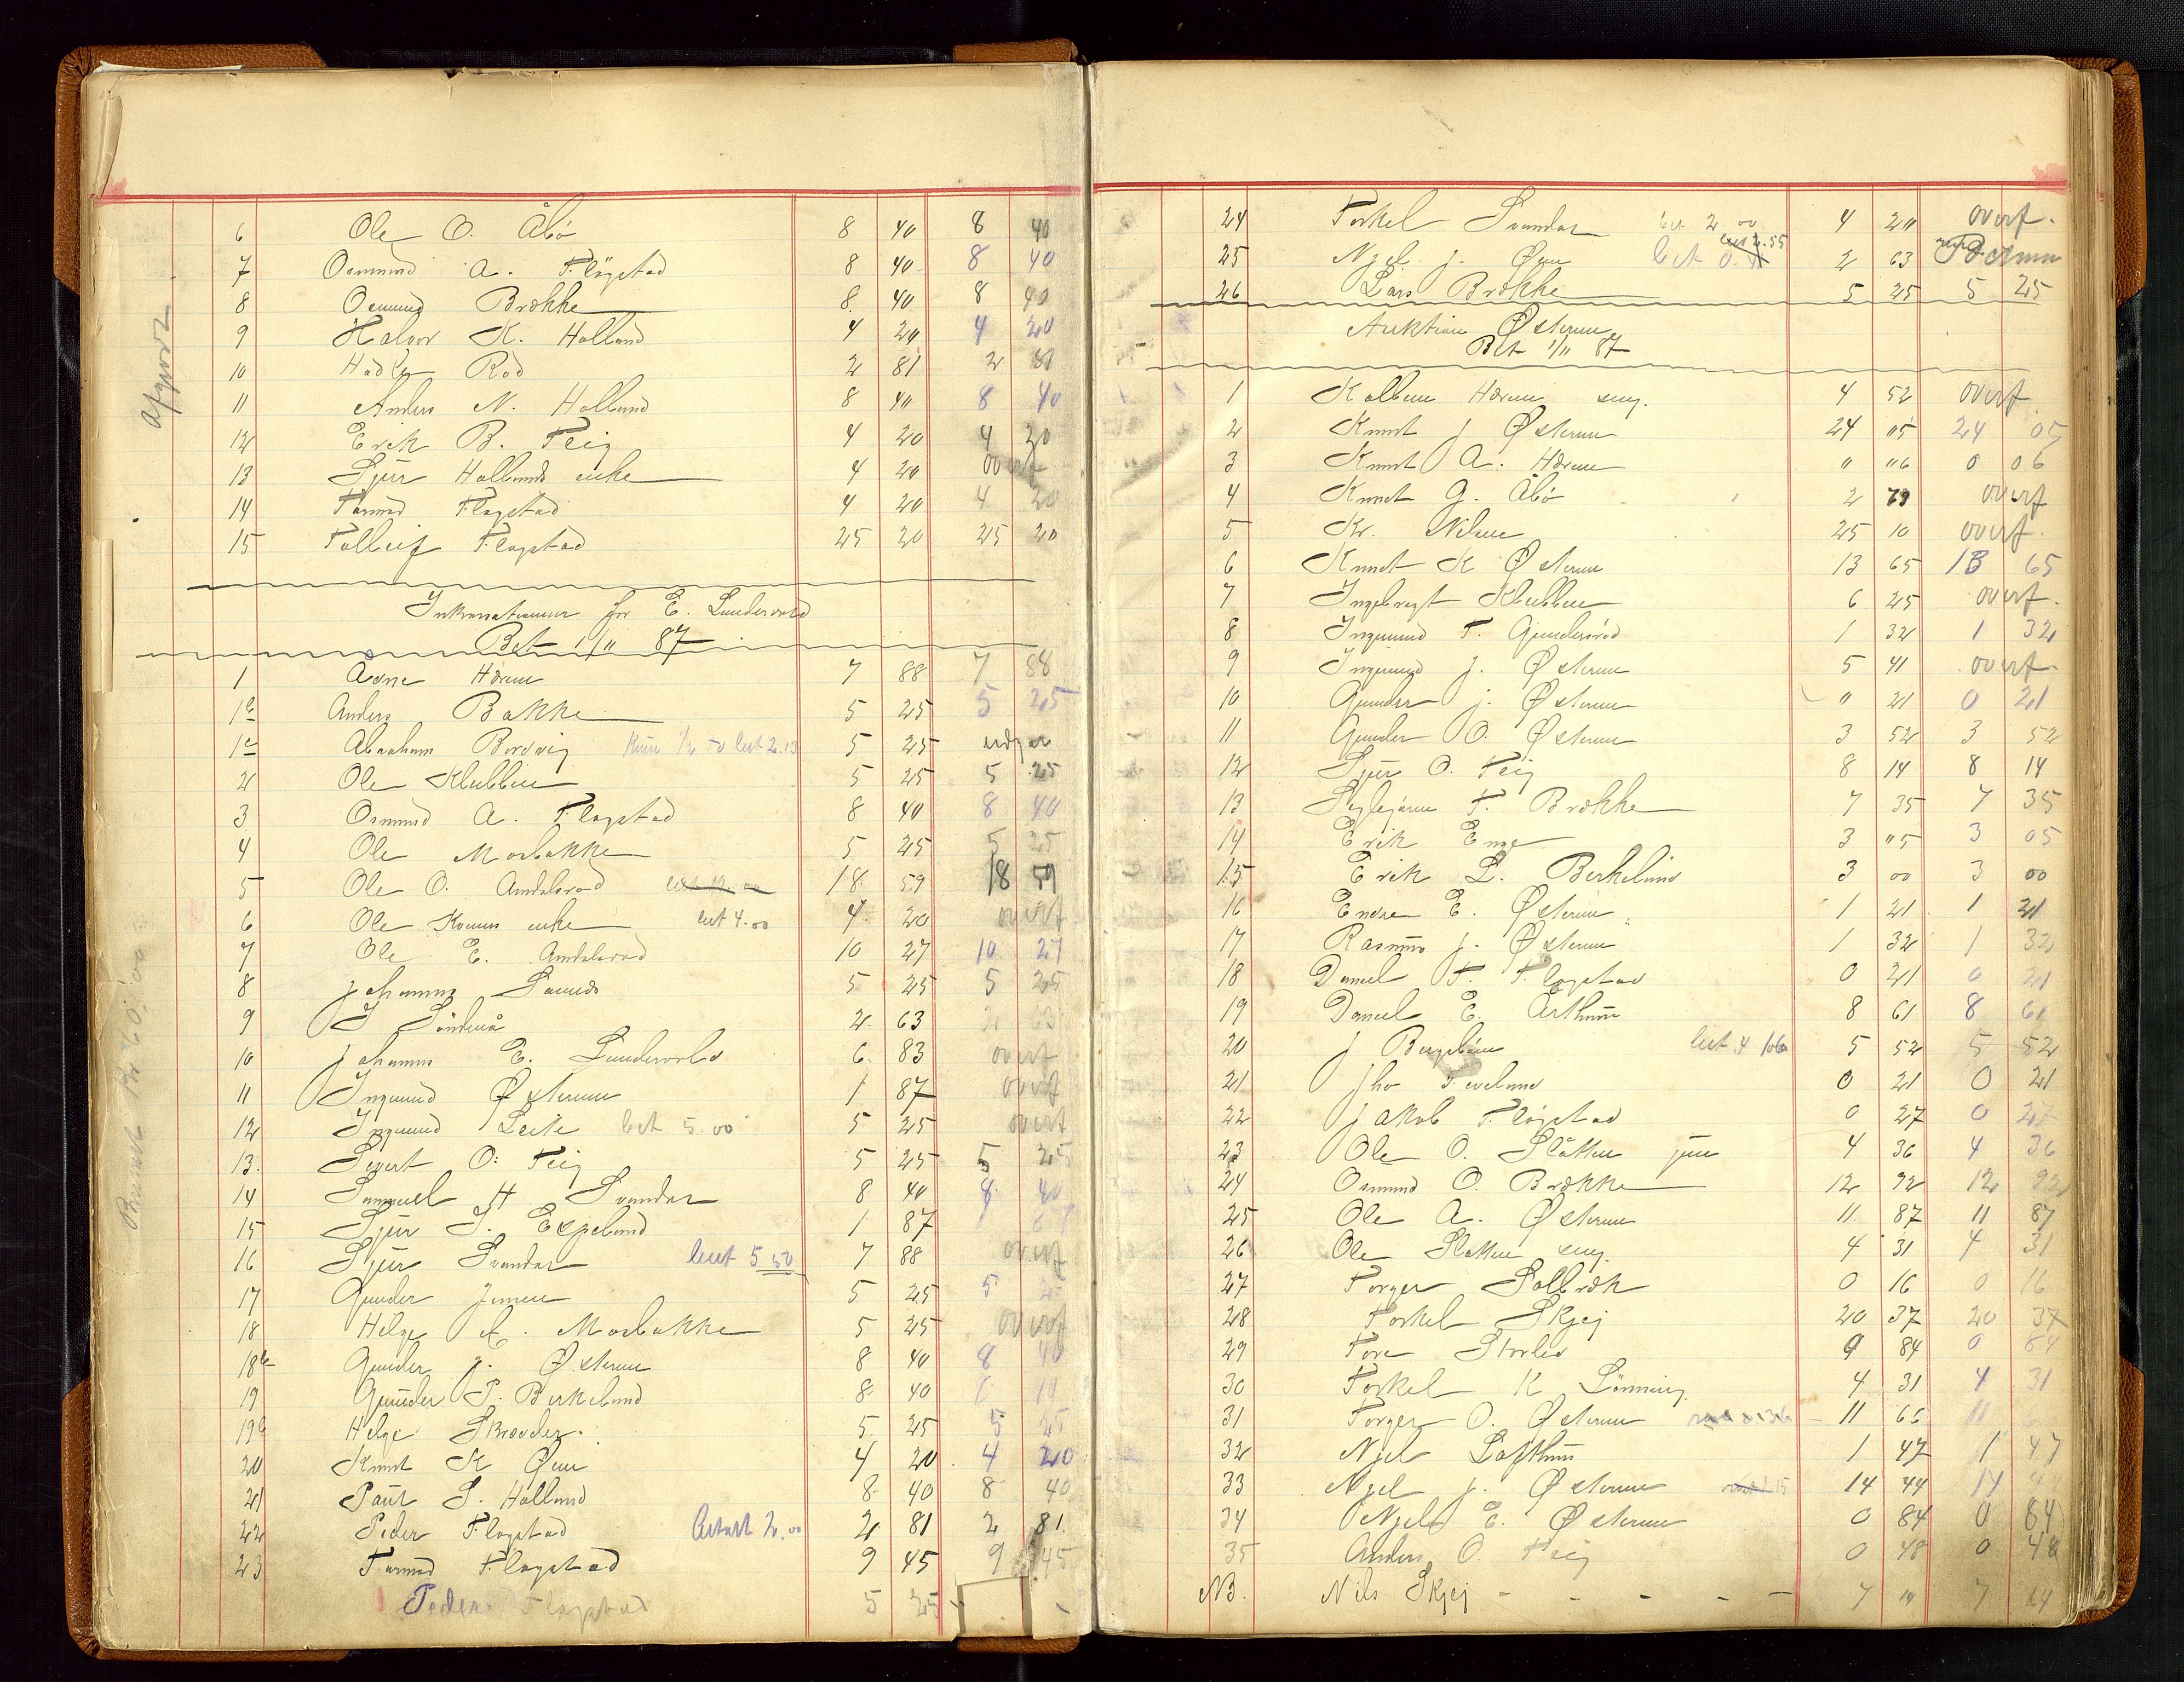 6 Ole O. Åbö 8 40 8 40
7 Osmund A. Flögstad 8 40 8 40
8 Osmund Brække 8 40 8 40
9 Halvor K. Holland 4 20 4 20
10 Rød 2 81 2 81
11 Anders N. Holland 8 40 8 40
12 Erik B. Teig 4 20 4 20
13 Sjur Hollands enke 4 20 overf
14 Tormod Flogstad 4 20 4 20
15 Tolleif Flogstad 25 20 25 20
Afgjort
for E. Sundersvold
Bet 1/11 87
1 Adne Hærem 7 88 7 88
1b Anders Bakke 5 25 5 25
1c Abraham 5 25
2 Ole Klubben 5 25 5 25
3 Osmund A. Flogstad 8 40 8 40
4 Ole Mosbakke 5 25 5 25
5 Ole O. Amdalsrød 18 59 18 59
6 Ole enke bet 4.00 4 20 overf
7 Ole E. Amdalsrød 10 27 10 27
8 Johannes 5 25 5 25
9 2 63 2 63
10 Johannes E. Sundersvold 6 83 overf
11 Ingmund Østerun 1 87 overf
12 Ingmund Leite bet 5.00 5 25 overf
13 Sivert O. Teig 5 25 5 25
14 Samuel H Svandal 8 40 8 40
15 Sjur I. Espeland 1 87
16 Sjur Svandal bet 5 50 7 88 overf
17 Gunder Jensen 5 25 5
18 Helge A. Mosbakke 5 25 overf
18b Gunder J. Østerun 8 40 8 40
19 Gunder P. Birkeland 8 40
19b Helge Skrodder 5 25 5 25
20 Knut K Øen 4 20 4 20
21 Paul S. Holland 8 40 8 40
22 Peder Flogstad Betalt 2.00 2 81 2 81
23 Tormod Flogstad 9 45 9 45
Peder Flogstad 5 25
24 Torkel Svandal bet 2 00 4 20 overf.
25 Njel J. Øen bet 2 63
26 Lars Brække 5 25 5 25
Auktion Østerun
Bet 1/11 87
1 Kolben Hærem seng. 4 52 overf
2 Knut J Østerun 24 05 24 05
3 Knut A. Hærem " 06 0 06
4 Knut G. Åbö 2 79 overf
5 Kr. Nilsen 25 10 overf.
6 Knut K Østerun 13 65 13 65
7 Ingebregt Klubben 6 25 overf.
8 Ingmund T. Gundersrød 1 32 1 32
9 Ingmund J. Østerun 5 41 overf.
10 Gunder J. Østerun " 21 0 21
11 Gunder O. Østerun 3 52 3 52
12 Sjur O. Teig 8 14 8 14
13 T. Brække 7 35 7 35
14 Erik Enge 3 "5 3 05
15 Erik L. Birkeland 3 00 3 00
16 Endre E. Østerun 1 21 1 21
17 Rasmus J. Østerun 1 32 1 32
18 Daniel T. Flogstad 0 21 0 21
19 Daniel E. Århun 8 61 8 61
20 J 5 52 5 52
21 0 21 0 21
22 Jakob Flögstad 0 27 0 27
23 Ole O. Slåtten jun 4 36 4 36
24 Osmund O. Brække 12 92 12 92
25 Ole A. Østerun 11 87 11 87
26 Ole Slatten seng. 4 31 4 31
27 Torger Solbræk 0 16 0 16
28 Torkel Skjej 20 37 20 37
29 Tore 9 84 0 84
30 Torkel K Lønning 4 31 4 31
31 Torger O. Østerun 11 66 11
32 Njel Lofthun 1 47 1 47
33 Njel J. Østerun 14 44 14 44
34 Njel E. Østerun 0 84 0 84
35 Anders O. Teig 0 48 0 48
NB. Nils Skjej 7 14 7 14